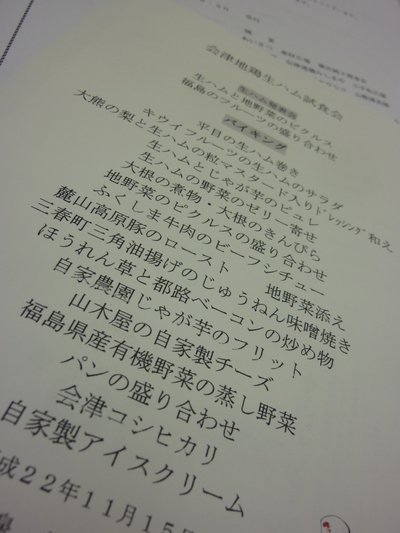 会津地鶏生ハム試食会
生ハムと地野菜のピクルス
福島のフルーツの盛り合わせ
バイキング
平目の生ハム巻き
キウイフルーツの生ハムのサラダ
大熊の梨と生ハムの粒マスタード入りドレッシング和え
生ハムとじゃが芋のピュレ
生ハムの野菜のゼリー寄せ
大根の煮物・大根のきんぴら
地野菜のピクルスの盛り合わせ
ふくしま牛肉のビーフシチュー
麓山高原豚のロースト 地野菜添え
三春町三角油揚げのじゅうねん味噌焼き
ほうれん草と都路ベーコンの炒め物
自家農園じゃが芋のフリット
山木屋の自家製チーズ
福島県産有機野菜の蒸し野菜
パンの盛り合わせ
会津コシヒカリ
自家製アイスクリーム
成22年11月15日